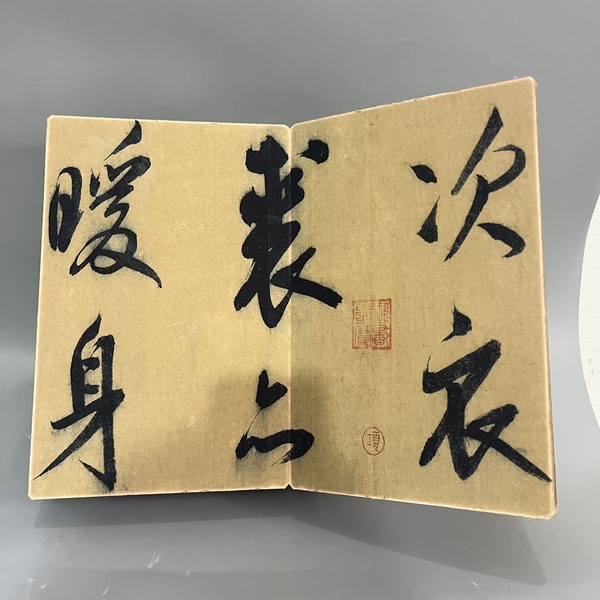 次衣
裘
暖身